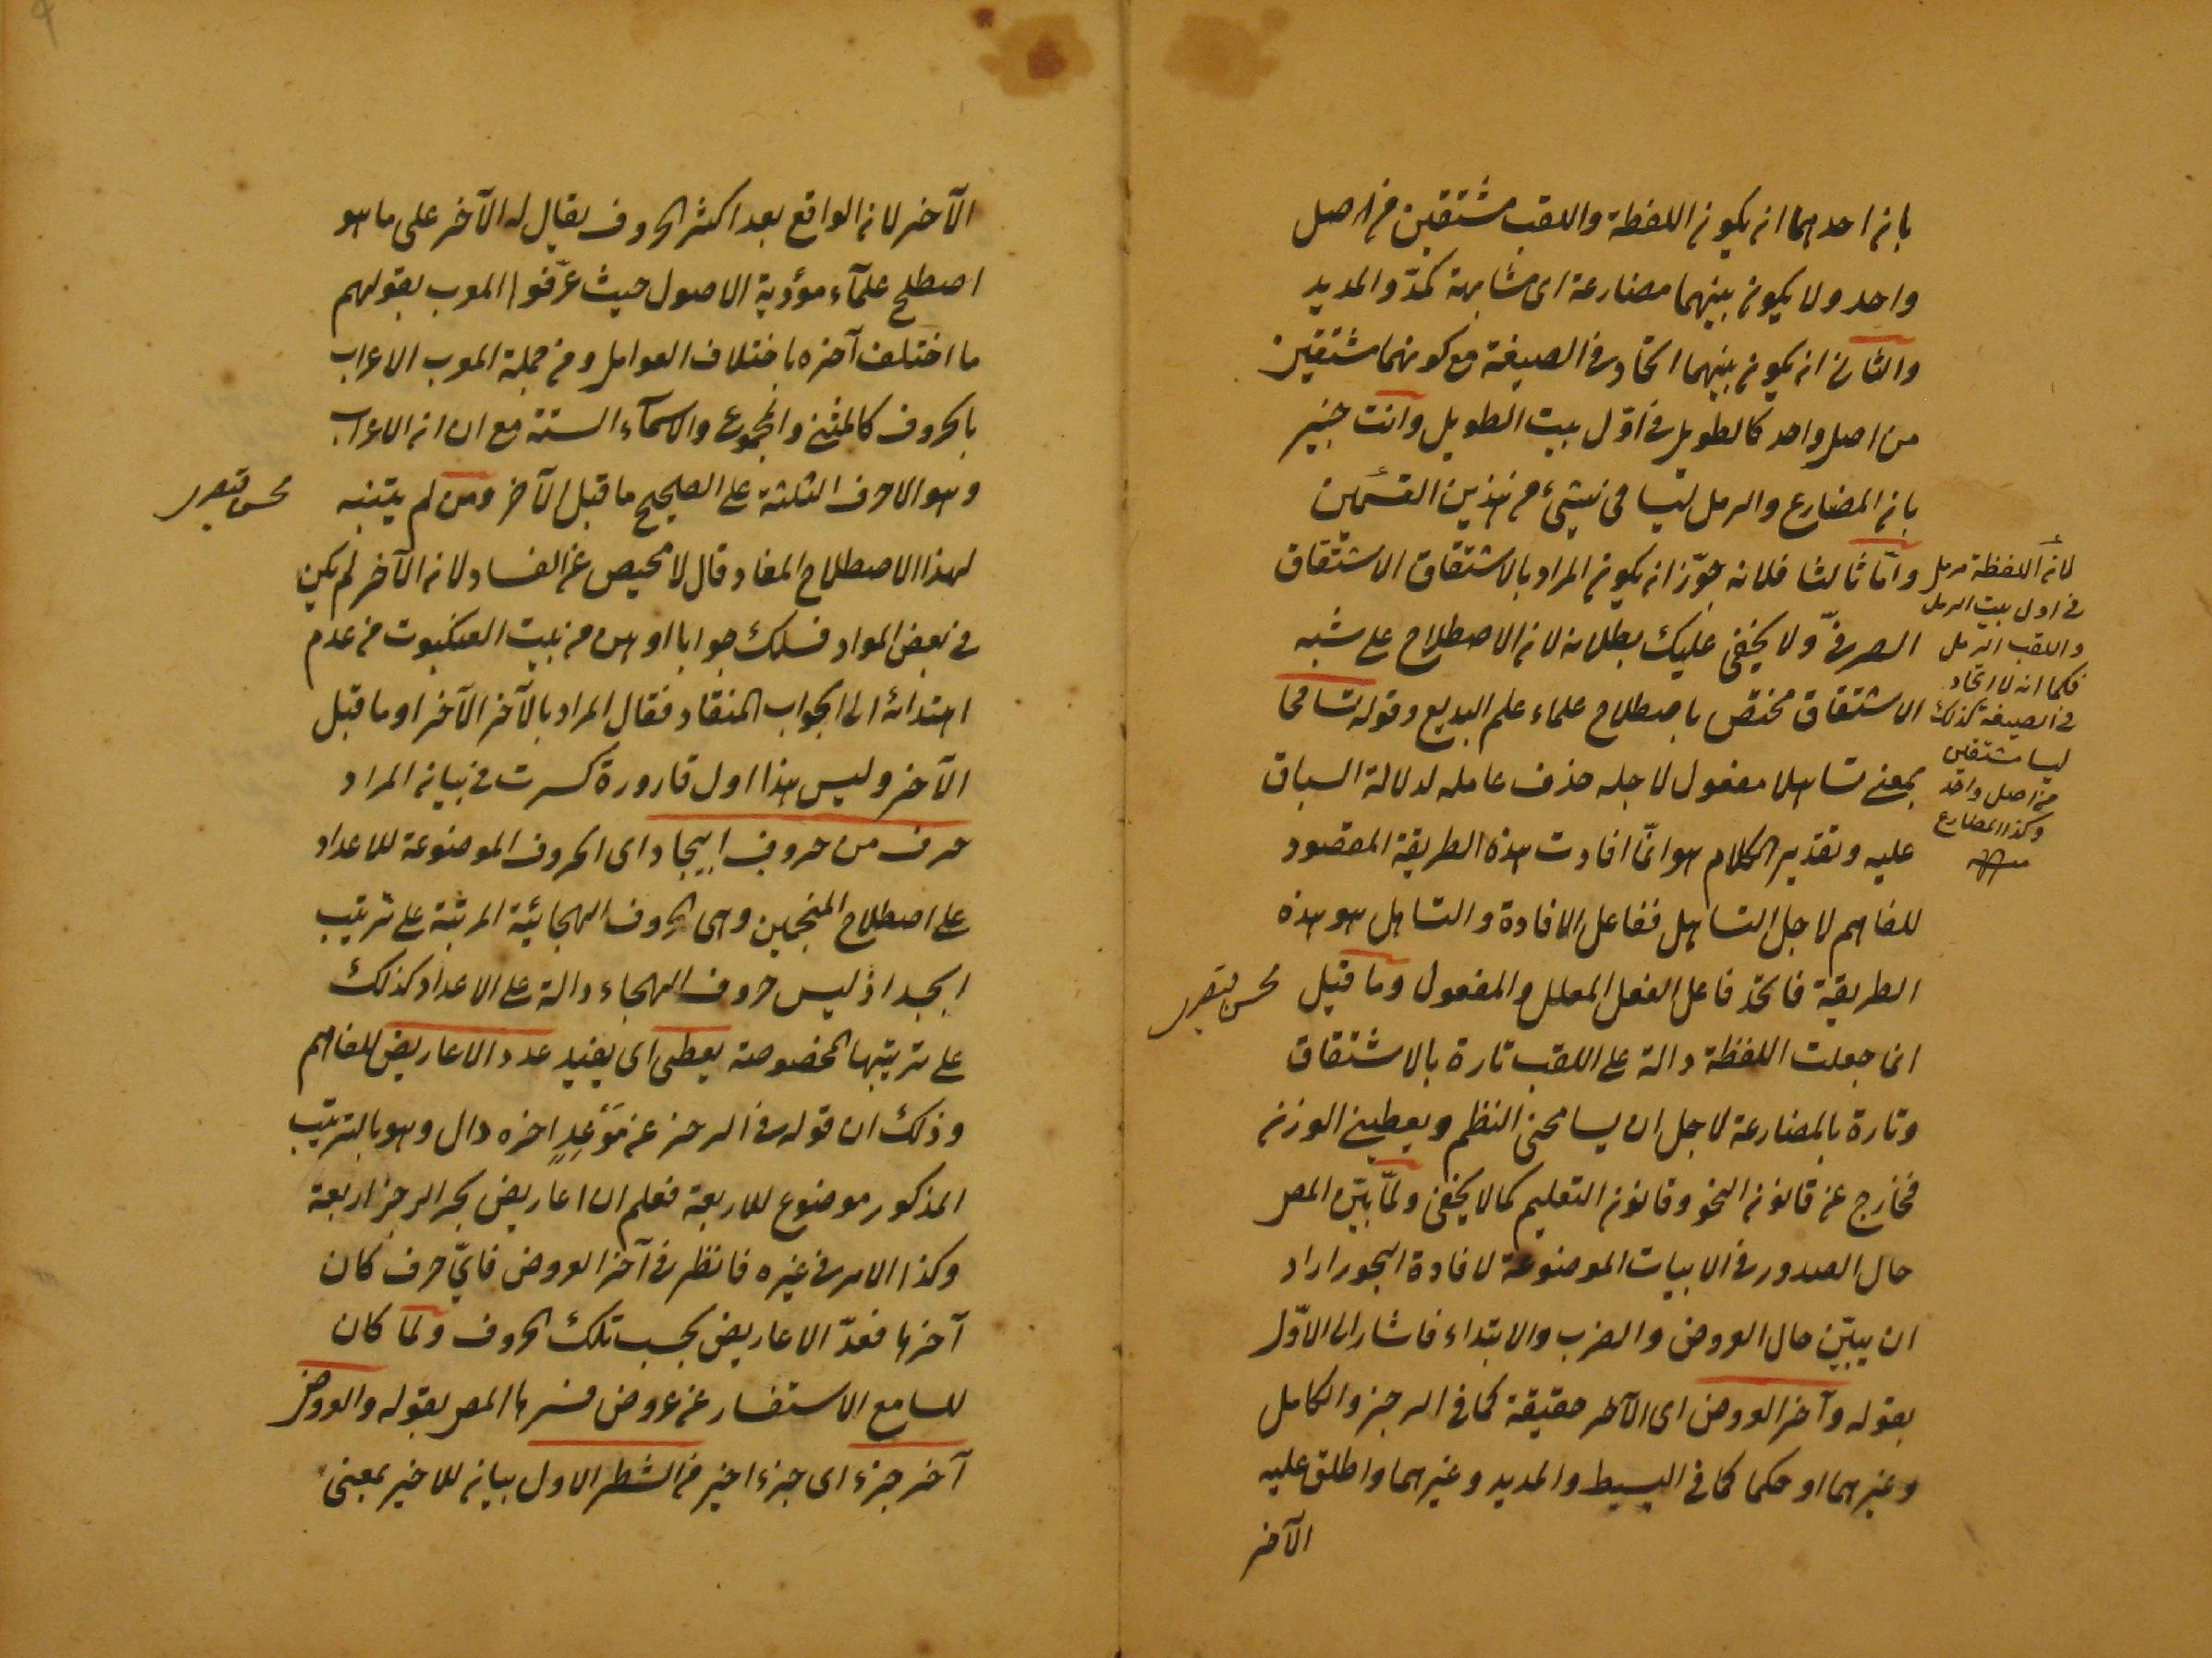 بان احدهما ان يكون اللفظة واللقب مشتقين من اصل
واحد ولا يكون بينهما مضارعة اى مشابهة كمدّ والمديد
والثانى ان يكون بينهما اتحاد فى الصيغة مع كونهما مشتقين
من اصل واحد كالطويل فى اوّل بيت الطويل وانت خبير
بان المضارع والرمل ليسا فى شئ من هذين القسمين
وامّا ثالثا فلانه جوّز ان يكون المراد بالاشتقاق الاشتقاق
الصرفىّ ولا يخفى عليك بطلانه لان الاصطلاح على شبه
الاشتقاق مختص باصطلاح علماء علم البديع وقوله تسامحا
بمعنى تساهلا مفعول لاجله حذف عامله لدلالة السباق
عليه وتقدير الكلام هو انّما افادت هذه الطريقة المقصود
للفاهم لاجل التساهل ففاعل الافادة والتساهل هو هذه
الطريقة فاتحد فاعل الفعل المعلل والمفعول وما قيل
انى جعلت اللفظة دالة على اللقب تارة بالاشتقاق
وتارة بالمضارعة لاجل ان يسامحنى النظم ويعطينى الوزن
فخارج عن قانون النحو وقانون التعليم كما لا يخفى ولمّا بيّن المص
حال الصدور فى الابيات الموضوعة لافادة البحور اراد
ان يبيّن حال العروض والضرب والابتداء فاشار الى الاوّل
بقوله وآخر العروض اى الآخر حقيقة كما فى الرجز والكامل
وغيرهما او حكما كما فى البسيط والمديد وغيرهما واطلق عليه
الآخر
لان اللفظة رمل
فى اول بيت الرمل
واللقب الرمل
فكما انه لا اتحاد
فى الصيغة كذلك
ليسا مشتقين
من اصل واحد
وكذا المضارع
منه
محسن قيصرى
الآخر لان الواقع بعد اكثر الحروف يقال له الآخر على ما هو
اصطلح علمآء مؤدية الاصول حيث عرّفوا المعرب بقولهم
ما اختلف آخره باختلاف العوامل ومن جملة المعرب الاعراب
بالحروف كالمثنى والمجموع والاسمآء الستة مع ان الاعراب
وهو الاحرف الثلثة على الصحيح ما قبل الآخر ومن لم يتنبه
لهذا الاصطلاح المفاد قال لا محيص عن الفساد لان الآخر لم يكن
فى بعض المواد فسلك جوابا اوهن من بيت العنكبوت من عدم
اهتدائه الى الجواب المنقاد فقال المراد بالآخر الآخر او ما قبل
الآخر وليس هذا اول قارورة كسرت فى بيان المراد
حرف من حروف ابيجاد اى الحروف الموضوعة للاعداد
على اصطلاح المنجمين وهى الحروف الهجائية المرتبة على ترتيب
ابجد اذ ليس حروف الهجاء دالة على الاعداد كذلك
على ترتيبها المخصوصة يعطى اى يفيد عدد الاعاريض للفاهم
وذلك ان قوله فى الرجز عن مَوْعِدٍ اخره دال وهو بالترتيب
المذكور موضوع للاربعة فعلم ان اعاريض بحر الرجز اربعة
وكذا الامر فى غيره فانظر فى آخر العروض فاىّ حرف كان
آخرها فعدّ الاعاريض بحسب تلك الحروف ولما كان
للسامع الاستفسار عن عروض فسرها المص بقوله والعروض
آخر جزء اى جزء اخير من الشطر الاول بيان للاخير بمعنى
محسن قيصرى